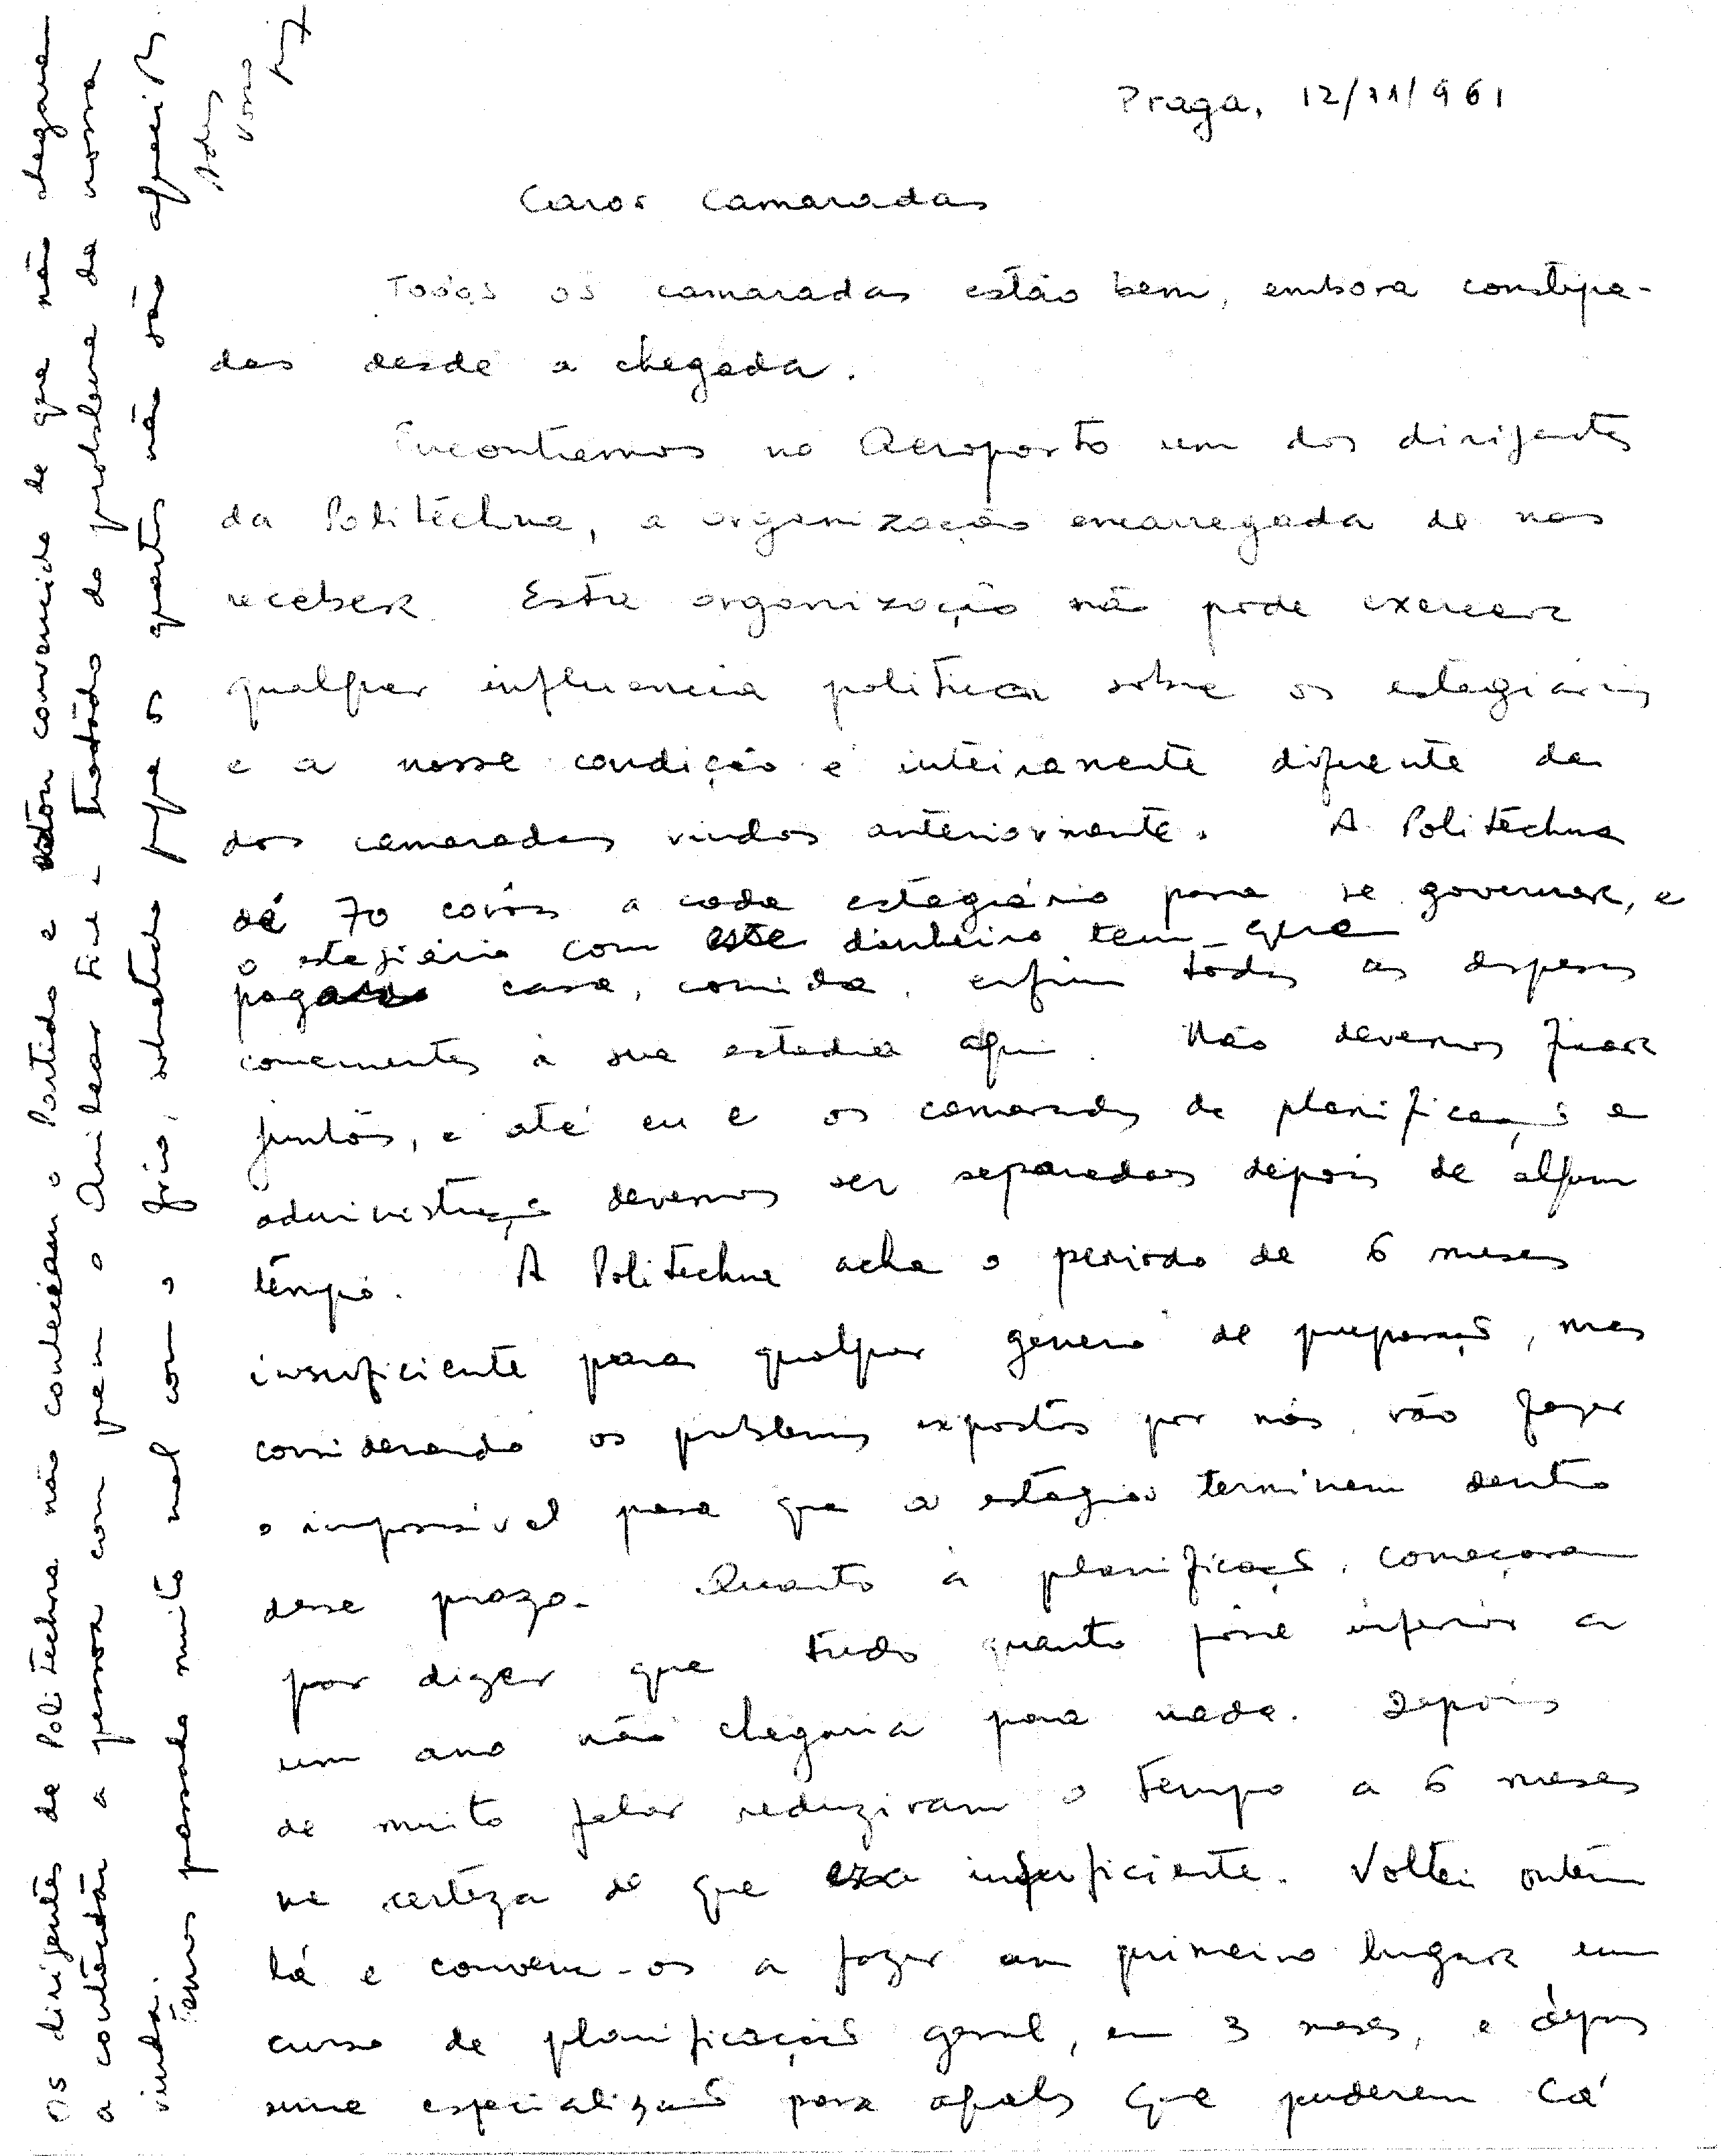 Praga, 12/11/961
Caros Camaradas
Todos os camaradas estão bem, embora constipa-
dos desde a chegada.
Encontramos no Aeroporto um dos dirigentes
da Politéchna, a organização encarregada de nos
receber. Esta organização não pode exercer
qualquer influencia politica sobre os estagiários
e a nossa condição é inteiramente diferente da
dos camaradas vindos anteriormente. A Politechna
dá 70 corôas a cada estagiário para se governar, e
o estagiário com este dinheiro tem que
pagar casa, comida, enfim todas as despesas
concernentes à sua estadia aqui. Não devemos ficar
juntos, e até eu e os camaradas de planificação e
administração devemos ser separados depois de algum
tempo. A Politechna acha o periodo de 6 meses
insuficiente para qualquer género de preparação, mas
considerando os problemas expostos por nós, vão fazer
o impossível para que o estágio terminem dentro
desse prazo. Quanto à planificação, começaram
por dizer que tudo quanto fosse inferior a
um ano não chegaria para nada. Depois
de muito falar reduziram o tempo a 6 meses
na certeza de que era insuficiente. Voltei ontem
lá e convenci-os a fazer em primeiro lugar um
curso de planificação geral, em 3 meses, e depois
uma especialização para aqueles que puderem cá
Os dirigentes da Politechna não conheciam o Partido e estou convencido de que não chegaram
a contactar a pessoa com quem o Amilcar tinha tratado do problema da nossa
vinda.
Temos passado muito mal com o frio, sobretudo porque os quartos não são aquecidos.
Adeus
Vosso